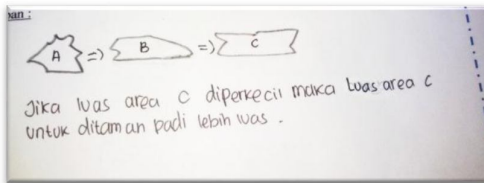 an :
A => B => C
Jika luas area C diperkecil maka luas area C
untuk ditaman padi lebih luas .